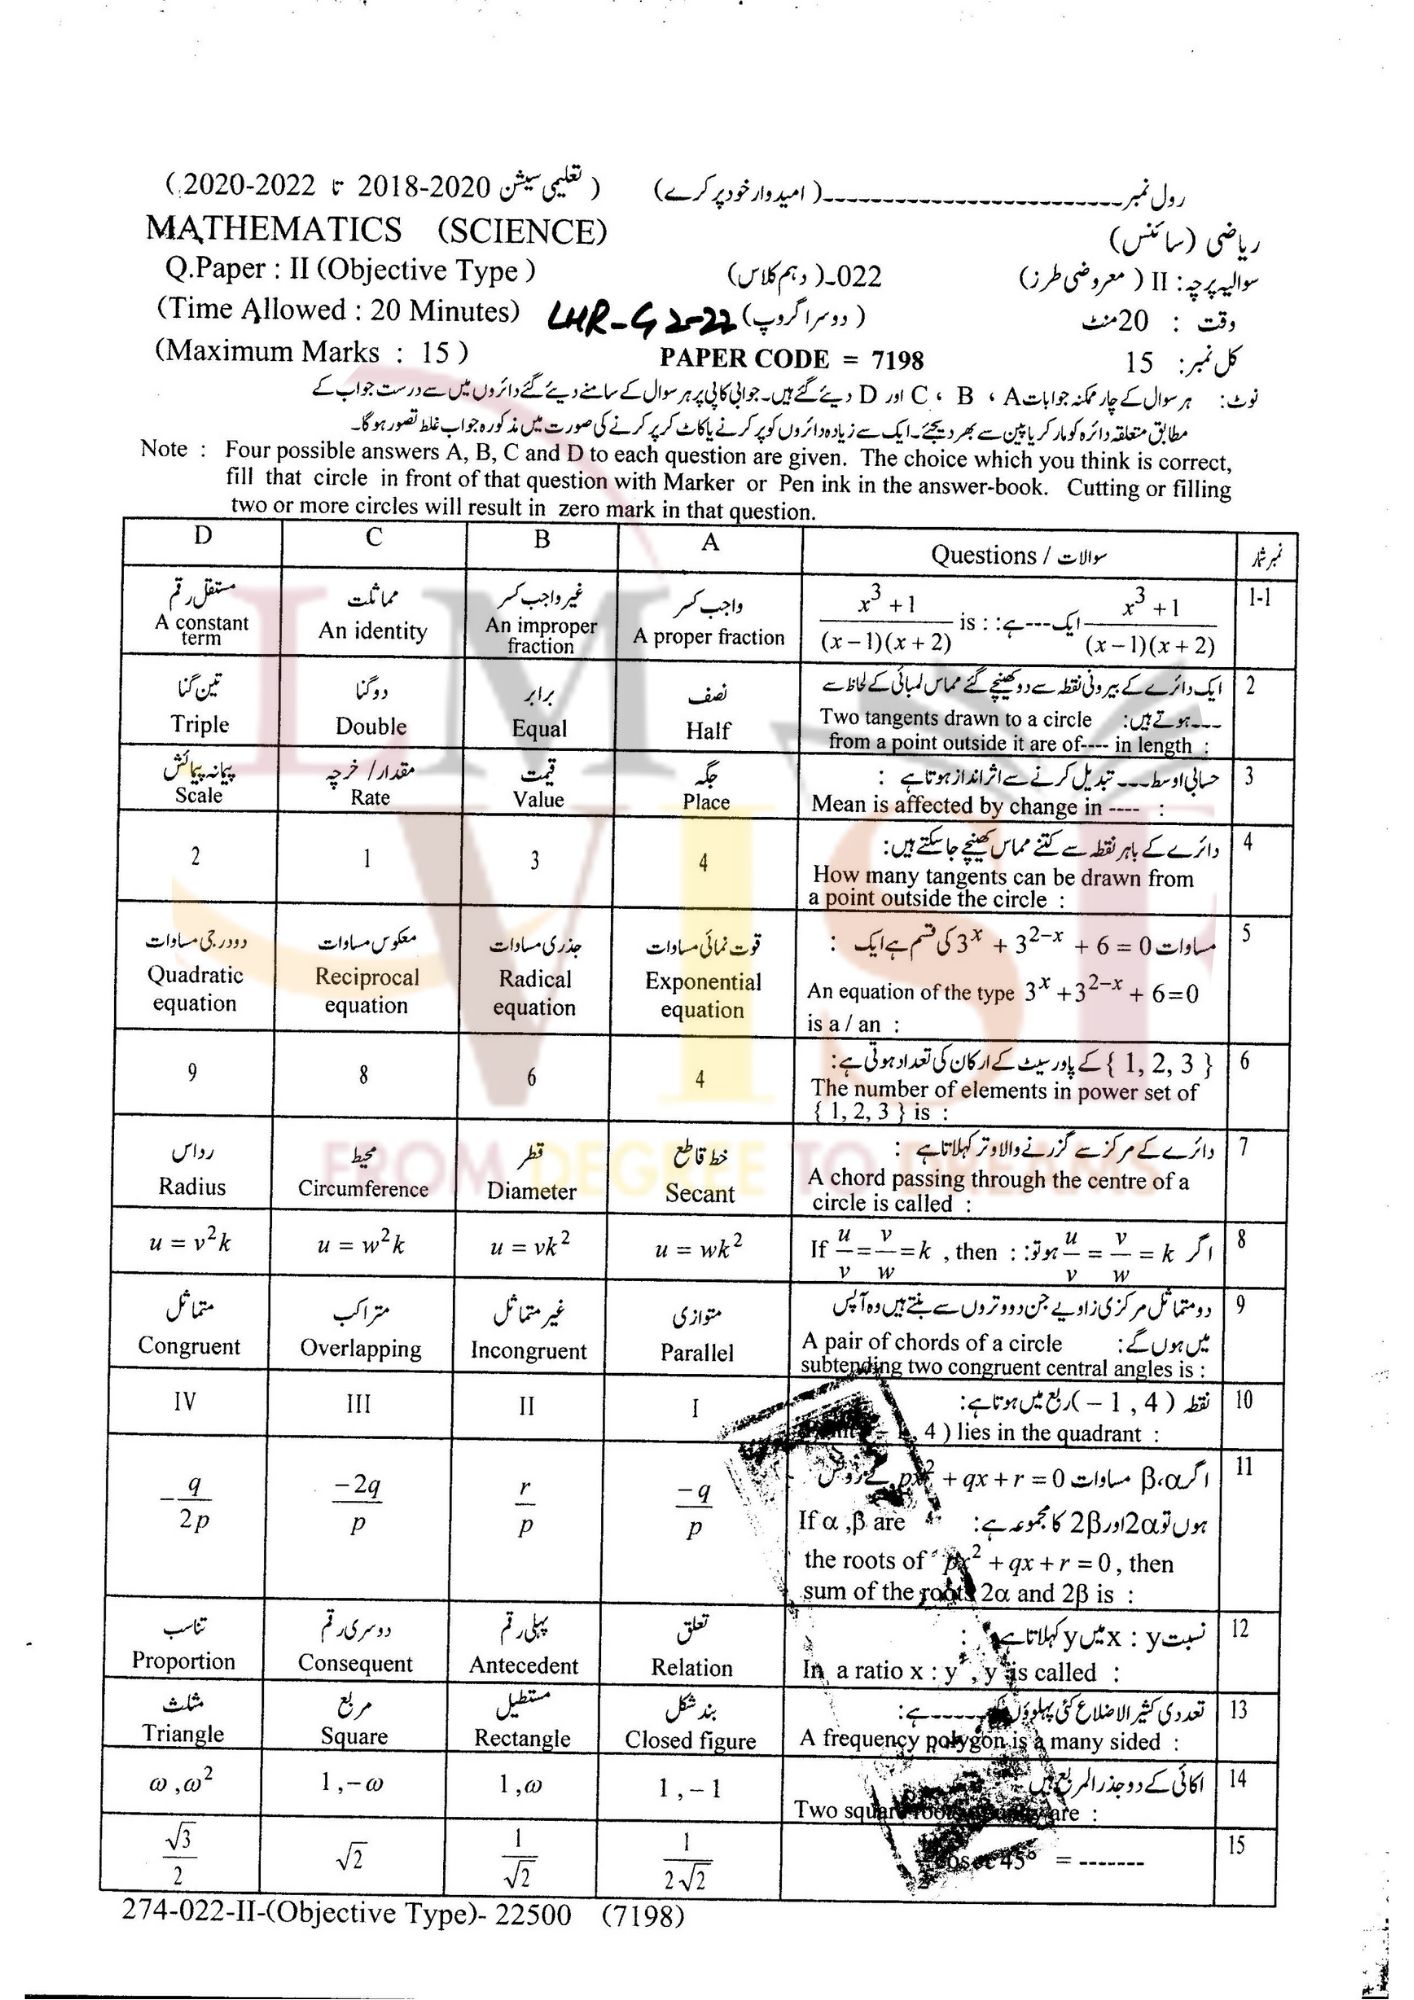 ( 2020-2022 تا 2018-2020 تعلیمی سیشن ) رول نمبر ـــــــــــــــــ ( امیدوار خود پر کرے )
MATHEMATICS (SCIENCE) ریاضی (سائنس)
Q.Paper : II (Objective Type ) 022ـ( دہم کلاس) سوالیہ پرچہ: II ( معروضی طرز)
(Time Allowed : 20 Minutes) LHR-G2-22 (دوسرا گروپ ) وقت : 20 منٹ
(Maximum Marks : 15 ) PAPER CODE = 7198 کل نمبر: 15
نوٹ: ہر سوال کے چار ممکنہ جوابات A ، B ، C اور D دیئے گئے ہیں۔ جوابی کاپی پر ہر سوال کے سامنے دیئے گئے دائروں میں سے درست جواب کے
مطابق متعلقہ دائرہ کو مارکر یا پین سے بھر دیجئے۔ ایک سے زیادہ دائروں کو پر کرنے یا کاٹ کر پر کرنے کی صورت میں مذکورہ جواب غلط تصور ہوگا۔
Note : Four possible answers A, B, C and D to each question are given. The choice which you think is correct,
fill that circle in front of that question with Marker or Pen ink in the answer-book. Cutting or filling
two or more circles will result in zero mark in that question.
D C B A Questions / سوالات نمبر شمار
مستقل رقم مماثلت غیر واجب کسر واجب کسر x³ + 1 / (x – 1)(x + 2) is : : ایک---ہے x³ + 1 / (x – 1)(x + 2) 1-1
A constant term An identity An improper fraction A proper fraction
تین گنا دوگنا برابر نصف ایک دائرے کے بیرونی نقطہ سے دو کھینچے گئے مماس لمبائی کے لحاظ سے 2
Triple Double Equal Half Two tangents drawn to a circle ---ہوتے ہیں:
from a point outside it are of---- in length :
پیمانہ پیمائش مقدار/ خرچہ قیمت جگہ حسابی اوسط --- تبدیل کرنے سے اثر انداز ہوتا ہے : 3
Scale Rate Value Place Mean is affected by change in ---- :
دائرے کے باہر نقطہ سے کتنے مماس کھینچے جا سکتے ہیں: 4
2 1 3 4 How many tangents can be drawn from
a point outside the circle :
دو درجی مساوات معکوس مساوات جذری مساوات قوت نمائی مساوات مساوات 3ˣ + 3²⁻ˣ + 6 = 0 کی قسم ہے ایک : 5
Quadratic equation Reciprocal equation Radical equation Exponential equation An equation of the type 3ˣ + 3²⁻ˣ + 6=0
is a / an :
{ 1, 2, 3 } کے پاور سیٹ کے ارکان کی تعداد ہوتی ہے: 6
9 8 6 4 The number of elements in power set of
{ 1, 2, 3 } is :
رداس محیط قطر خط قاطع دائرے کے مرکز سے گزرنے والا وتر کہلاتا ہے : 7
Radius Circumference Diameter Secant A chord passing through the centre of a
circle is called :
u = v²k u = w²k u = vk² u = wk² If u/v = v/w = k , then : : اگر u/v = v/w = k ہو تو 8
متماثل متراکب غیر متماثل متوازی دو متماثل مرکزی زاویے جن دو وتروں سے بنتے ہیں وہ آپس 9
Congruent Overlapping Incongruent Parallel A pair of chords of a circle میں ہوں گے:
subtending two congruent central angles is :
IV III II I نقطہ ( – 1 , 4 ) ربع میں ہوتا ہے: 10
4 ) lies in the quadrant :
–q/2p –2q/p r/p –q/p اگر β،α مساوات px² + qx + r = 0 کے 11
If α ,β are ہوں تو 2α اور 2β کا مجموعہ ہے:
the roots of px² + qx + r = 0 , then
sum of the roots 2α and 2β is :
تناسب دوسری رقم پہلی رقم تعلق نسبت x : y میں y کہلاتا ہے : 12
Proportion Consequent Antecedent Relation In a ratio x : y , y is called :
مثلث مربع مستطیل بند شکل تعددی کثیر الاضلاع کئی پہلوؤں -----ہے: 13
Triangle Square Rectangle Closed figure A frequency polygon is a many sided :
ω , ω² 1 , –ω 1 , ω 1 , – 1 اکائی کے دو جذر المربع ہیں 14
Two square roots are :
√3/2 √2 1/√2 1/2√2 cosec 45° = ------- 15
274-022-II-(Objective Type)- 22500 (7198)
LM VISE
FROM DEGREE TO DREAMS